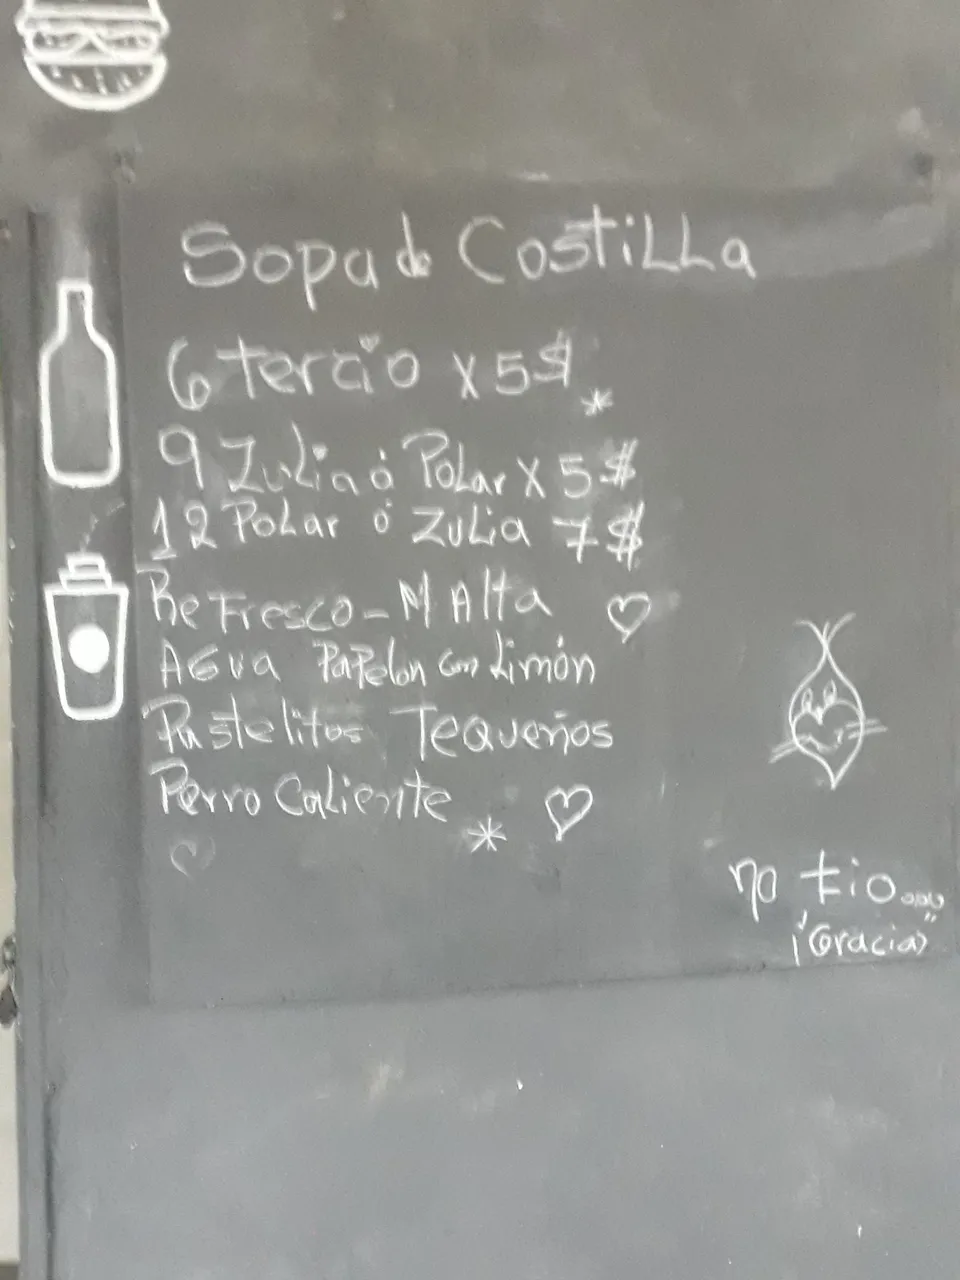 Sopa de Costilla
6 tercio x 5$
9 Zulia ó Polar x 5$
12 Polar ó Zulia 7$
Refresco - Malta
Agua Papelon con Limón
Pastelitos Tequeños
Perro Caliente
no fio...
¡Gracias"